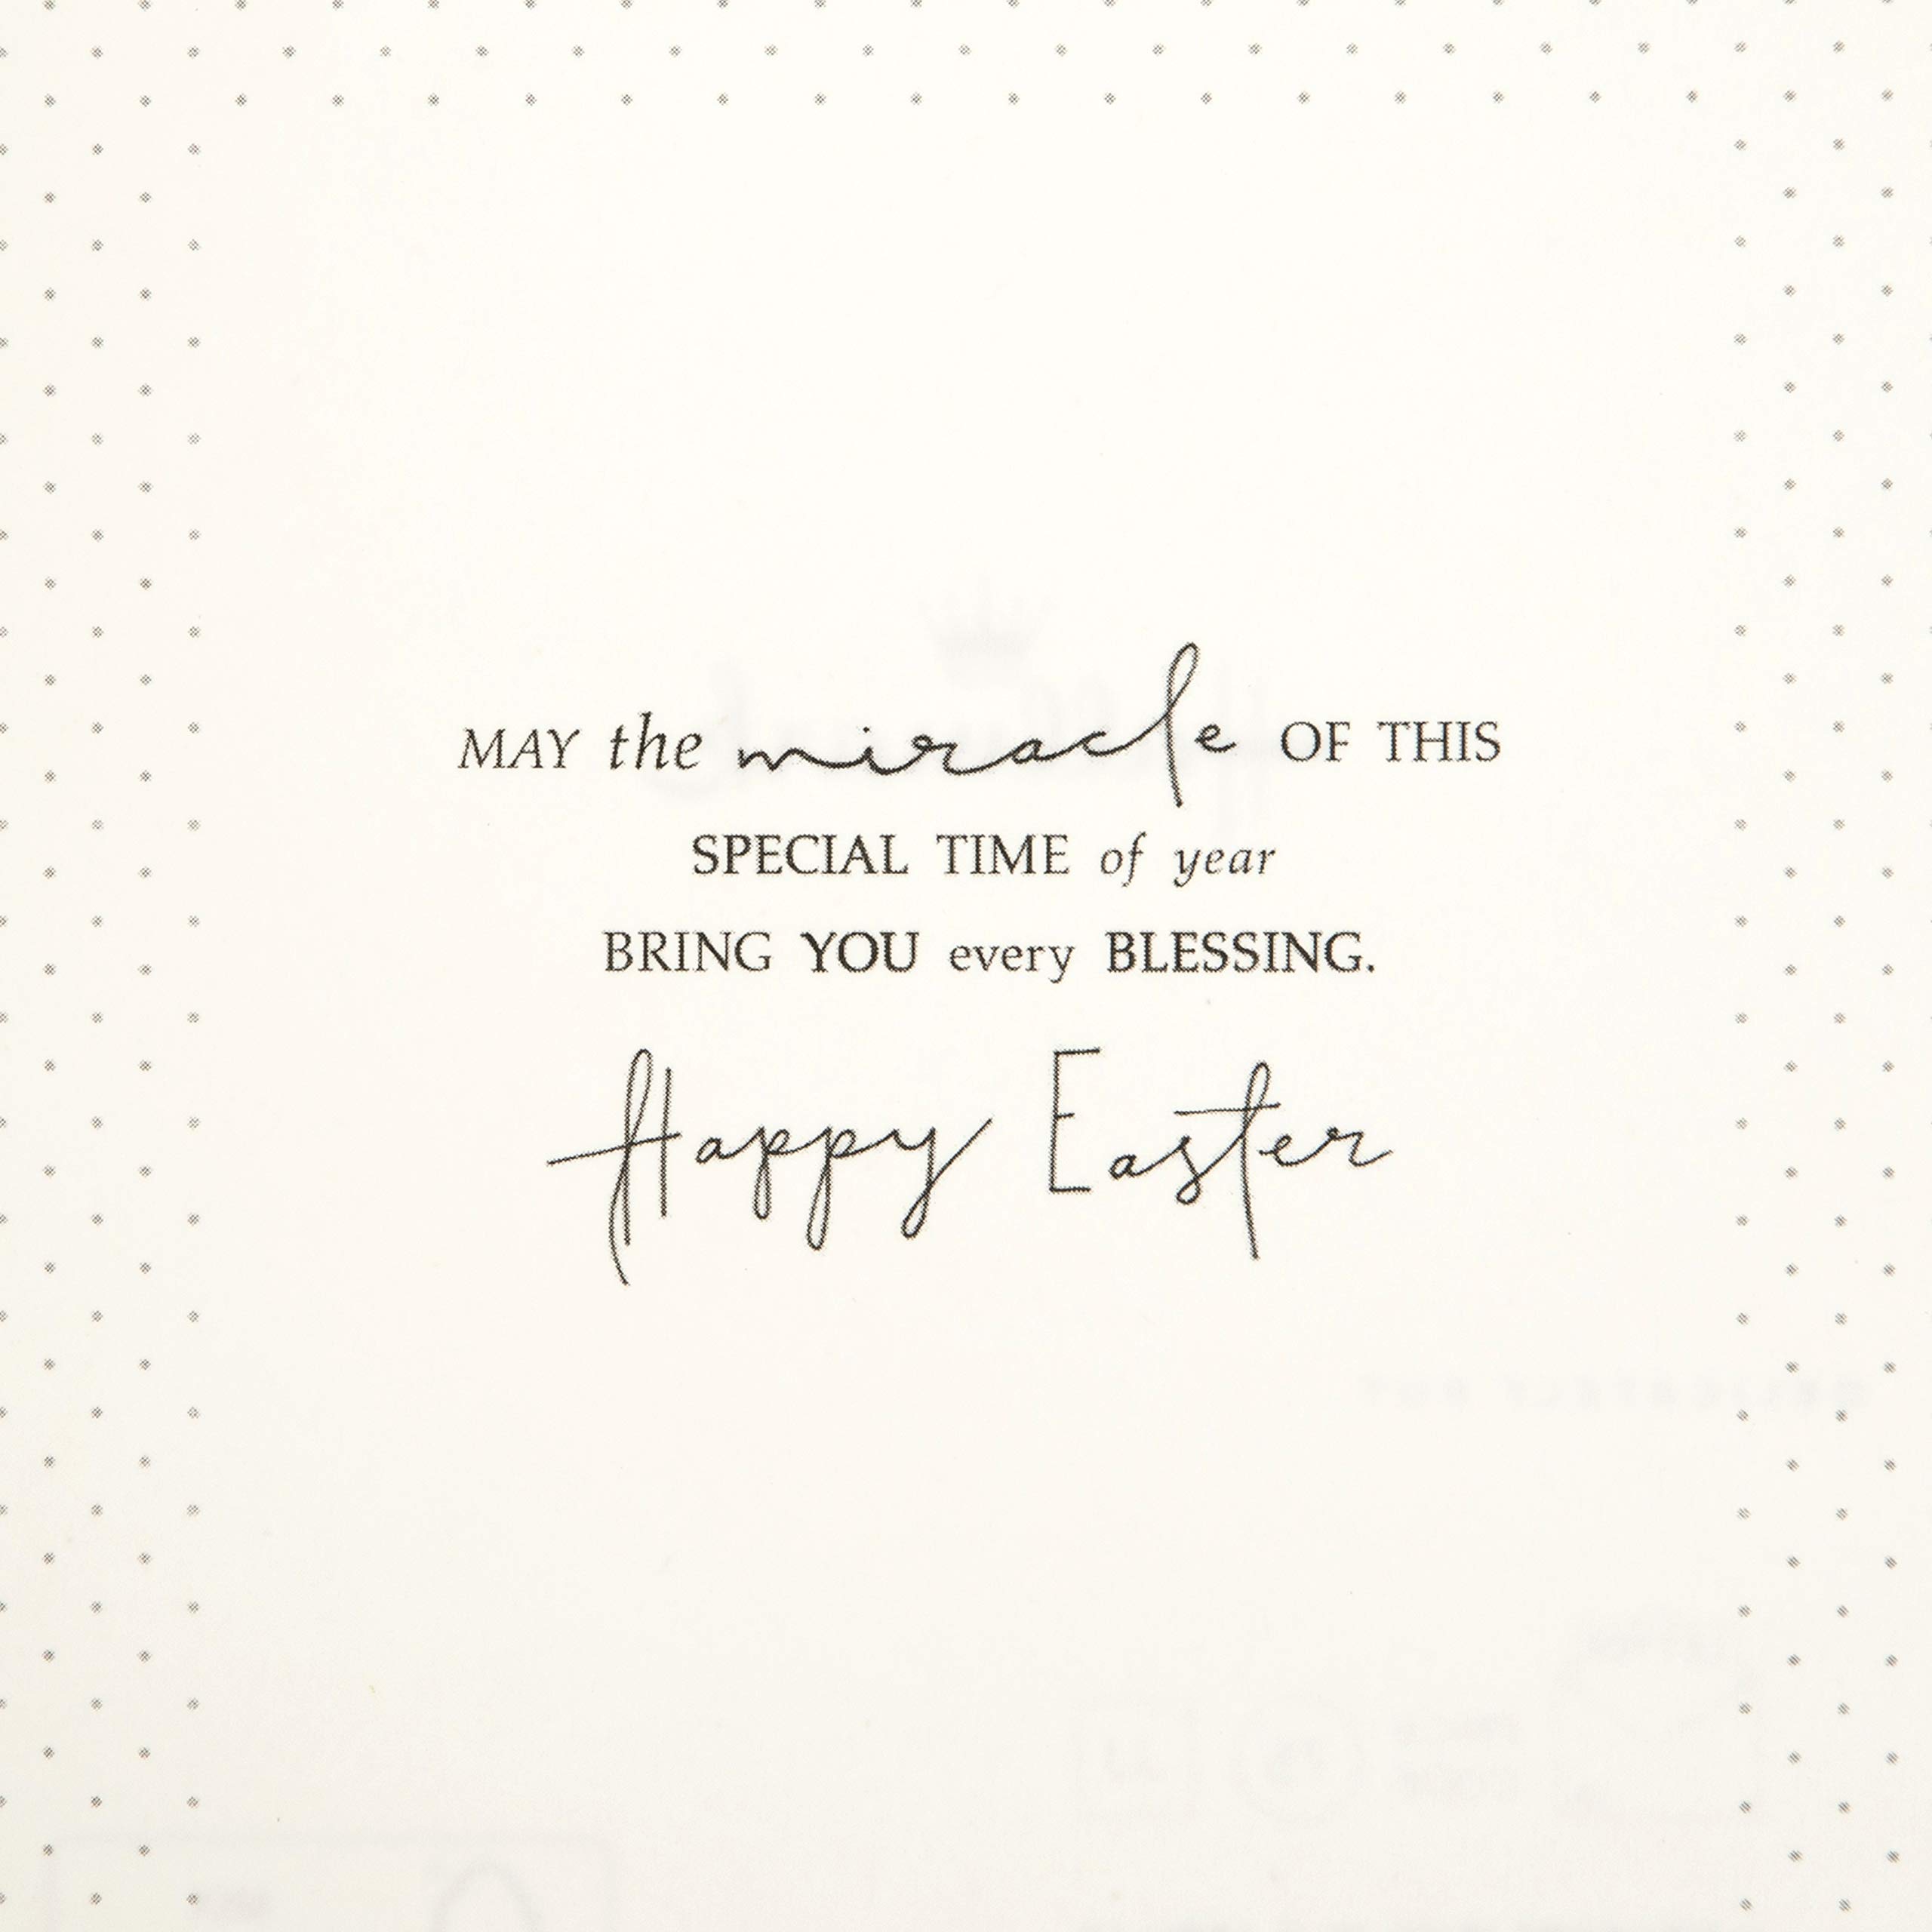 MAY the miracle OF THIS
SPECIAL TIME of year
BRING YOU every BLESSING.
Happy Easter